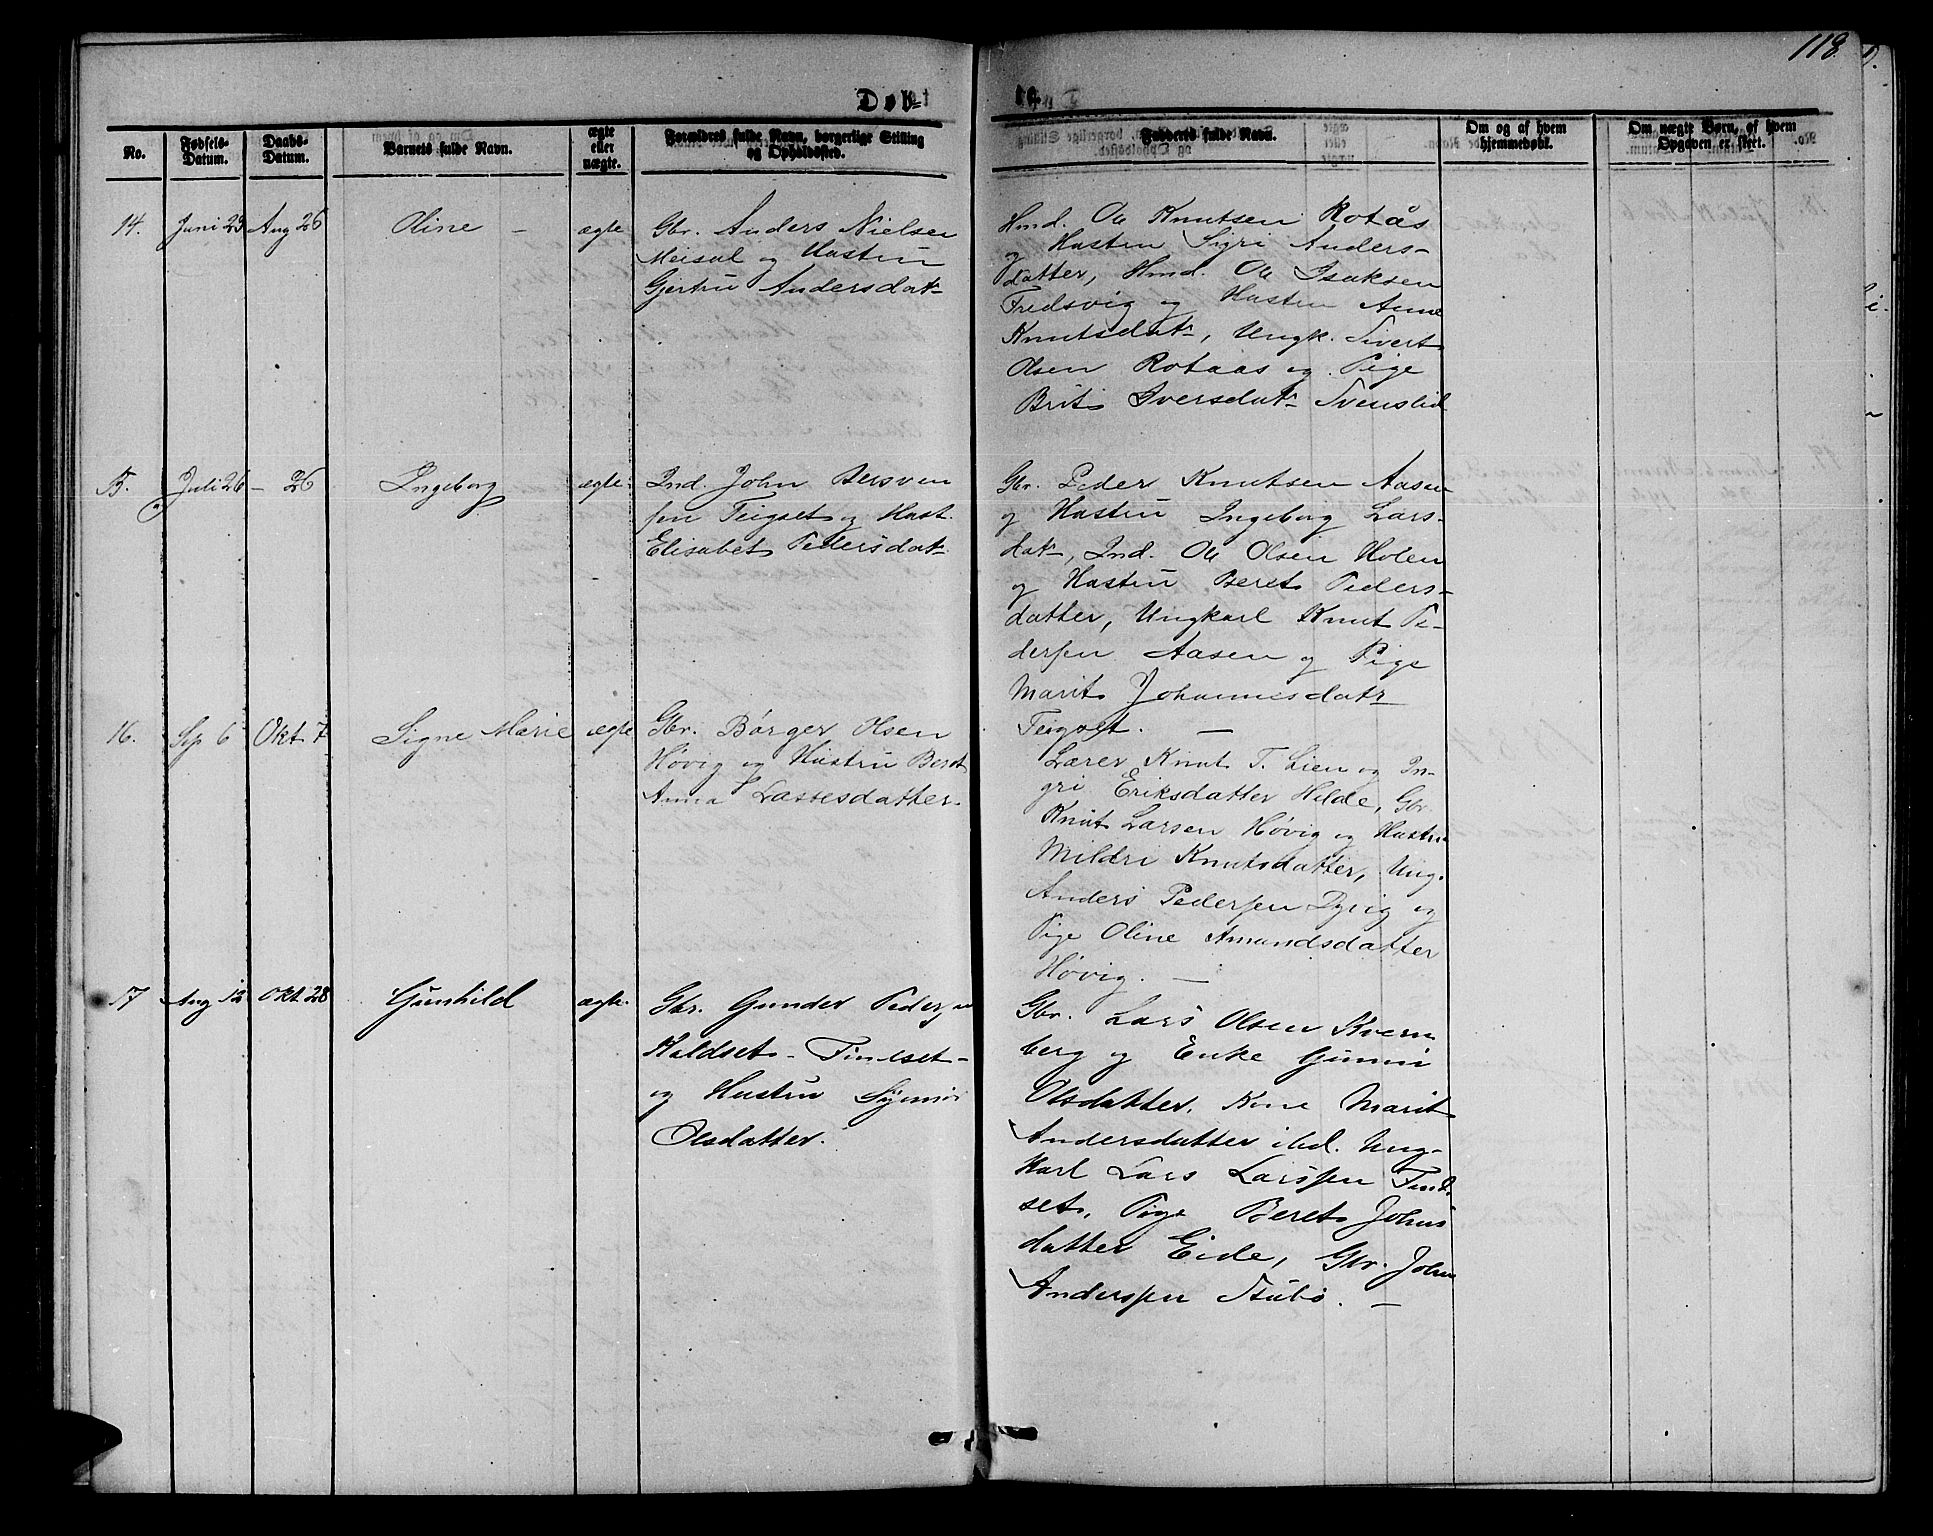 118
Døbte
No.
Fødsels-
Datum.
Daabs-
Datum.
Barnets fulde Navn.
ægte
eller
uægte.
Forældres fulde Navn, borgerlige Stilling
og Opholdssted.
Fadderes fulde Navn.
Om og af hvem
hjemmedøbt.
Om uægte Børn, af hvem
Opgaven er skeet.
14. Juni 23 Aug 26 Oline – ægte
Gbr. Anders Nielsen
Meisal og Hustru
Gjertru Andersdatr
Hmd. Ole Knutsen Rotås
og Hustru Sigri Anders-
datter, Hmd. Ole Isaksen
Fredsvig og Hustru Anne
Knutsdatr, Ungk. Sivert
Olsen Rotaas og Pige
Brit Iversdatr Svenslid
15. Juli 26 – 26 Ingeborg ægte
Ind. John Bersven
sen Teigset og Hust.
Elisabet Pedersdatr
Gbr. Peder Knutsen Aasen
og Hustru Ingeborg Lars-
datr, Ind. Ole Olsen Holen
og Hustru Beret Peders-
datter, Ungkarl Knut Pe-
dersen Aasen og Pige
Marit Johannesdatr
Teigset. –
16. Sep 6 Okt 7 Signe Marie ægte
Gbr. Børger Olsen
Høvig og Hustru Beret
Anna Lassesdatter.
Lærer Knut T. Lien og In-
gri Eriksdatter Hilde, Gbr.
Knut Larsen Høvig og Hustru
Mildri Knutsdatter, Ung.
Anders Pedersen Dyvig og
Pige Oline Amundsdatter
Høvig. –
17 Aug 12 Okt. 28 Gunhild ægte.
Gbr. Gunder Pedersen
Haldset – Findset –
og Hustru Synnøi
Olsdatter.
Gbr. Lars Olsen Kvern
berg og Enke Gunni
Olsdatter, Kone Marit
Andersdatter ibd. Ung-
karl Lars Larssen Find-
set, Pige Beret Johns
datter Eide, Gbr. John
Anderssen Stubø. –